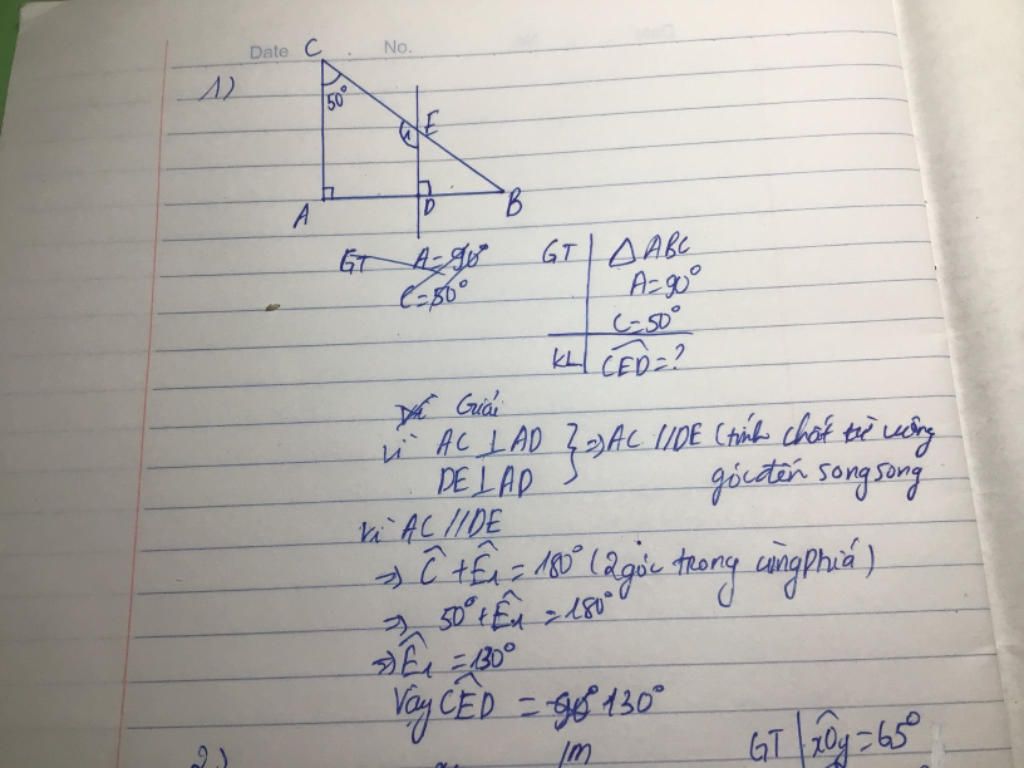 Date No.
1)
C
50°
E
1
A
D
B
GT A=90°
C=50°
GT ΔABC
A=90°
C=50°
KL CED=?
Giải
Vì AC⊥AD
DE⊥AD
⇒AC//DE (tính chất từ vuông
góc đến song song
Vì AC//DE
⇒ Ĉ+Ê₁=180° (2 góc trong cùng phía)
⇒ 50°+Ê₁=180°
⇒Ê₁=130°
Vậy CED = 90° 130°
2)
m
GT xOy=65°